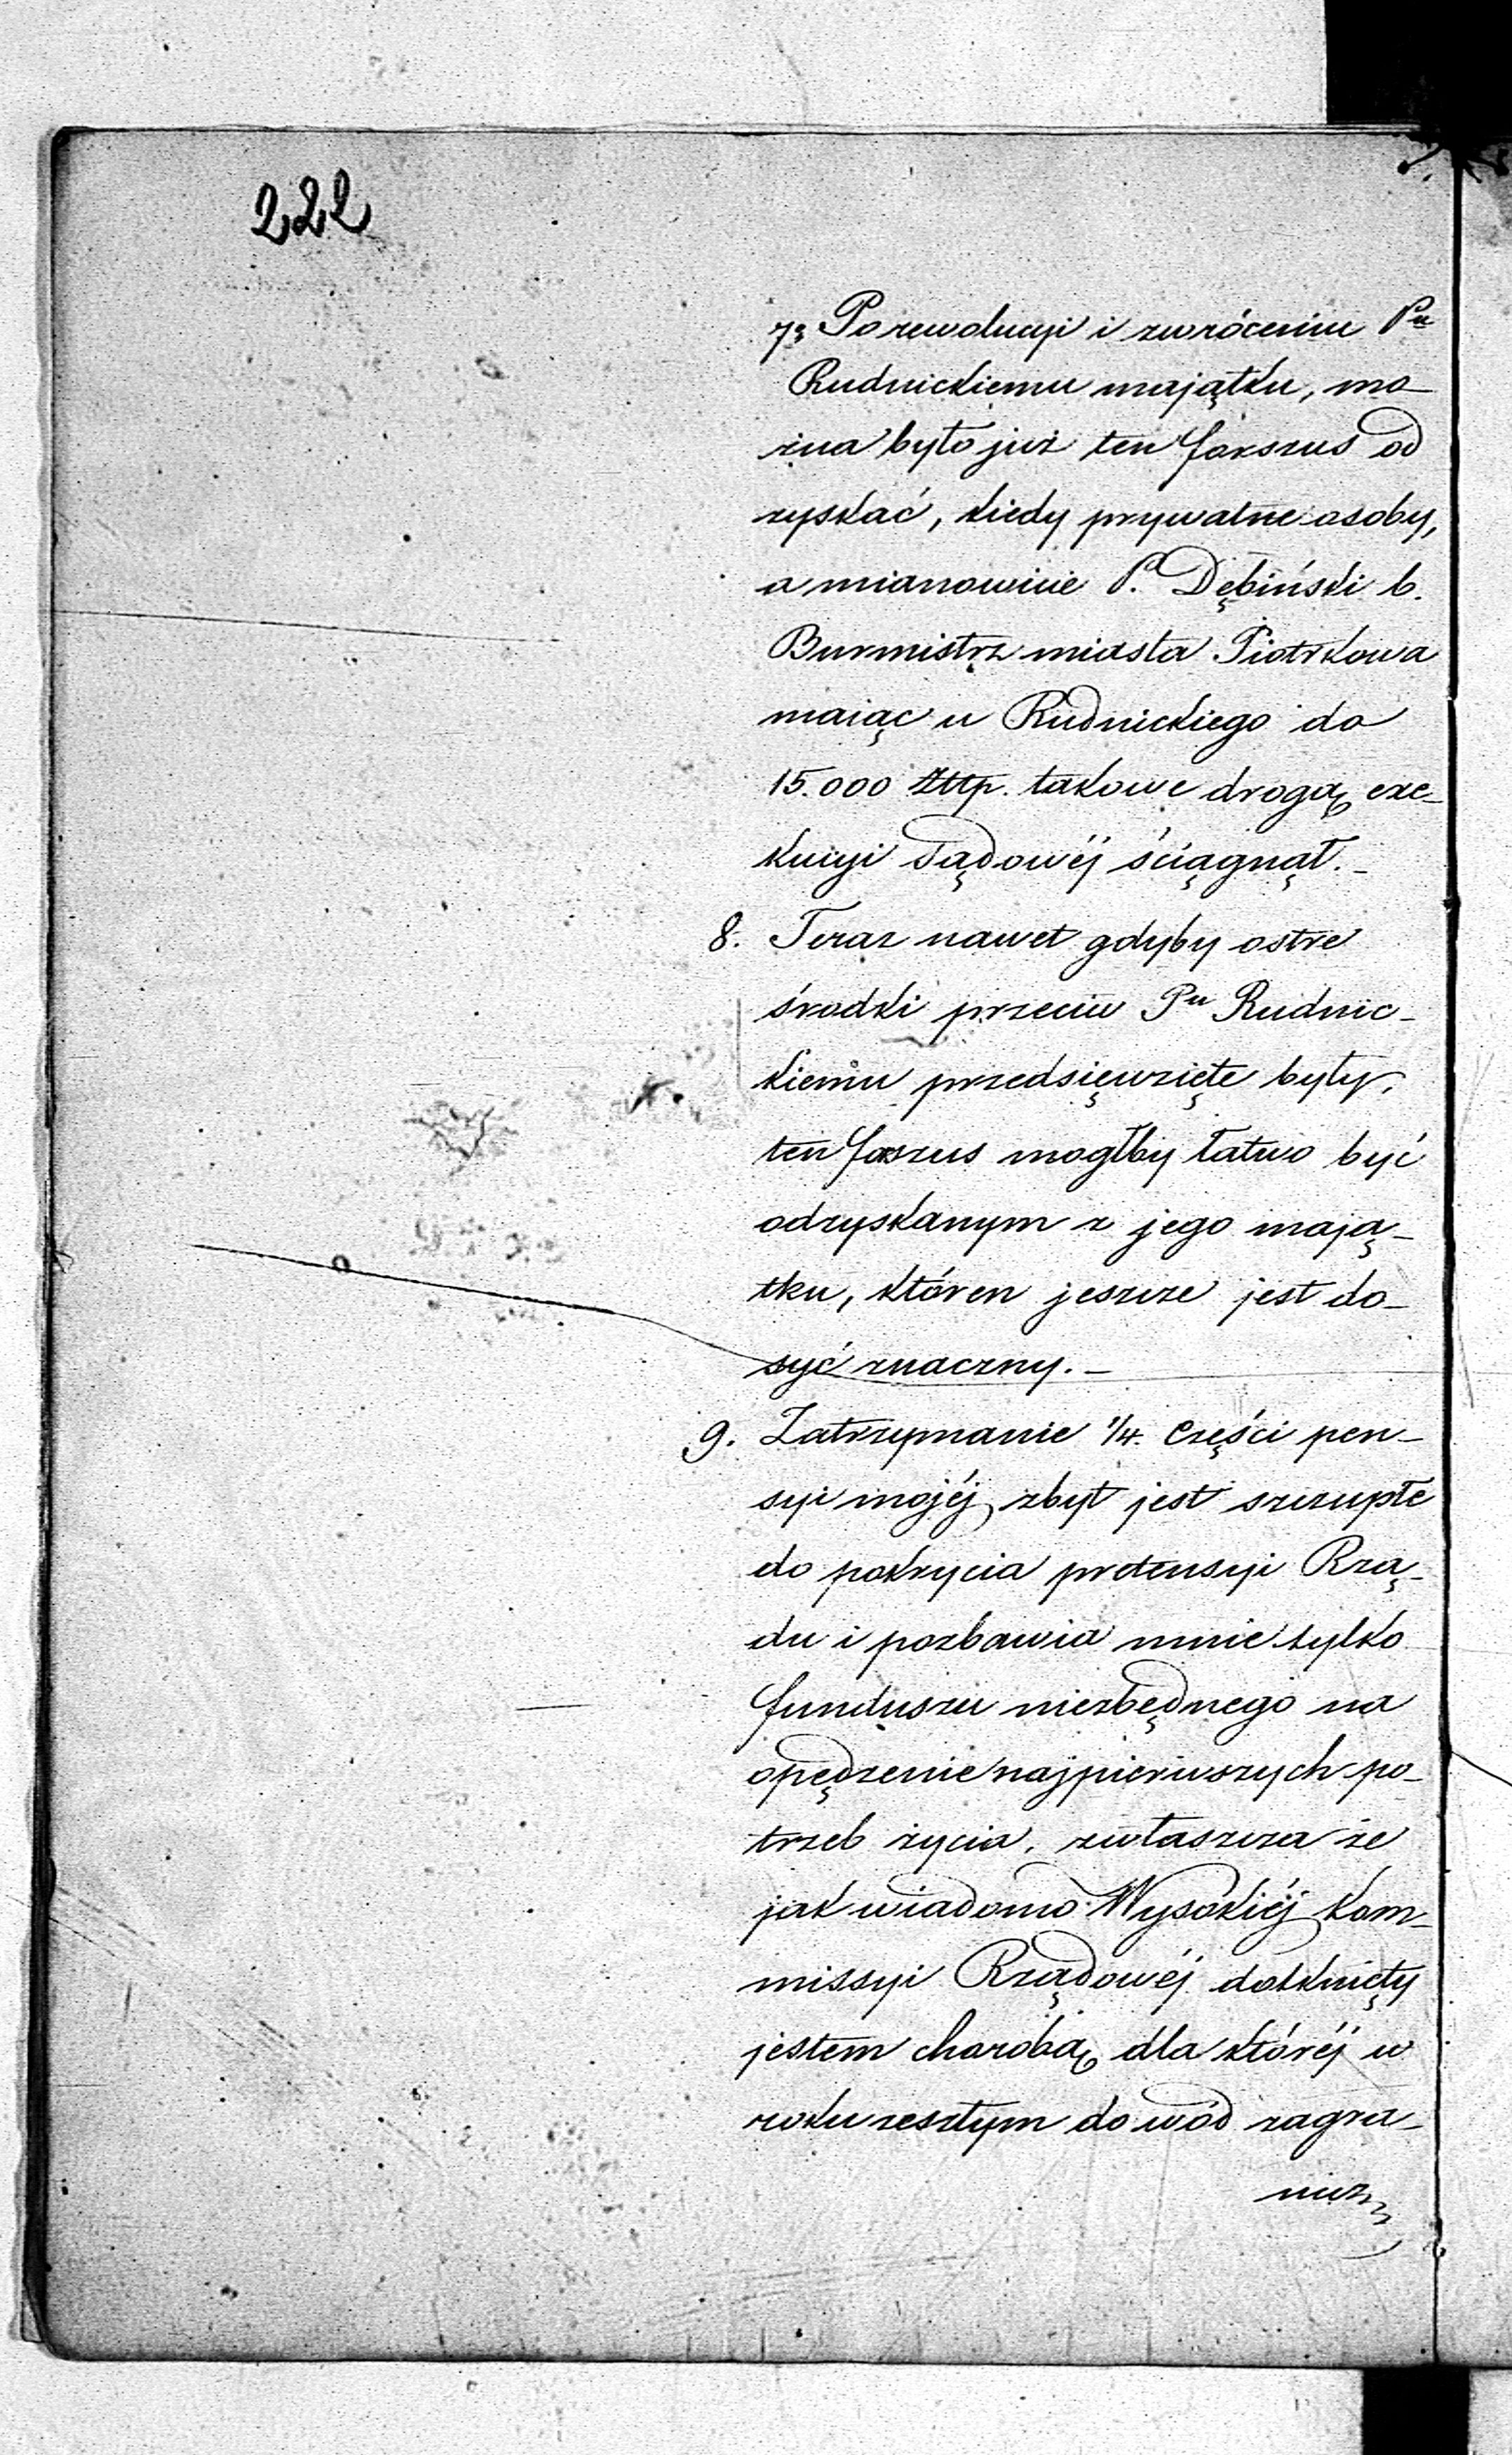 222
7. Po rewolucyi i zwróceniu Pu
Rudnickiemu majątku, mo-
żna było już ten forszus od
zyskać, kiedy prywatne osoby,
a mianowicie P. Dębiński b.
Burmistrz miasta Piotrkowa
maiąc u Rudnickiego do
15.000 Złłp. takowe drogą exe-
kucyi sądowéj ściągnął.-
8. Teraz nawet gdyby ostre
środki przeciw Pu Rudnic-
kiemu przedsięwzięte były,
ten foszus mogłby łatwo być
odzyskanym z jego mają-
tku, któren jeszcze jest do-
syć znaczny.-
9. Zatrzymanie 1/4. części pen-
syi mojéj, zbyt jest szczupłe
do pokrycia pretensyi Rzą-
du i pozbawia mnie tylko
funduszu niezbędnego na
opędzenie najpierwszych po-
trzeb życia, zwłaszcza że
jak wiadomo Wysokiéj Kom-
missyi Rządowéj dotknięty
jestem chorobą, dla któréj w
roku zeszłym do wód zagra-
nicz